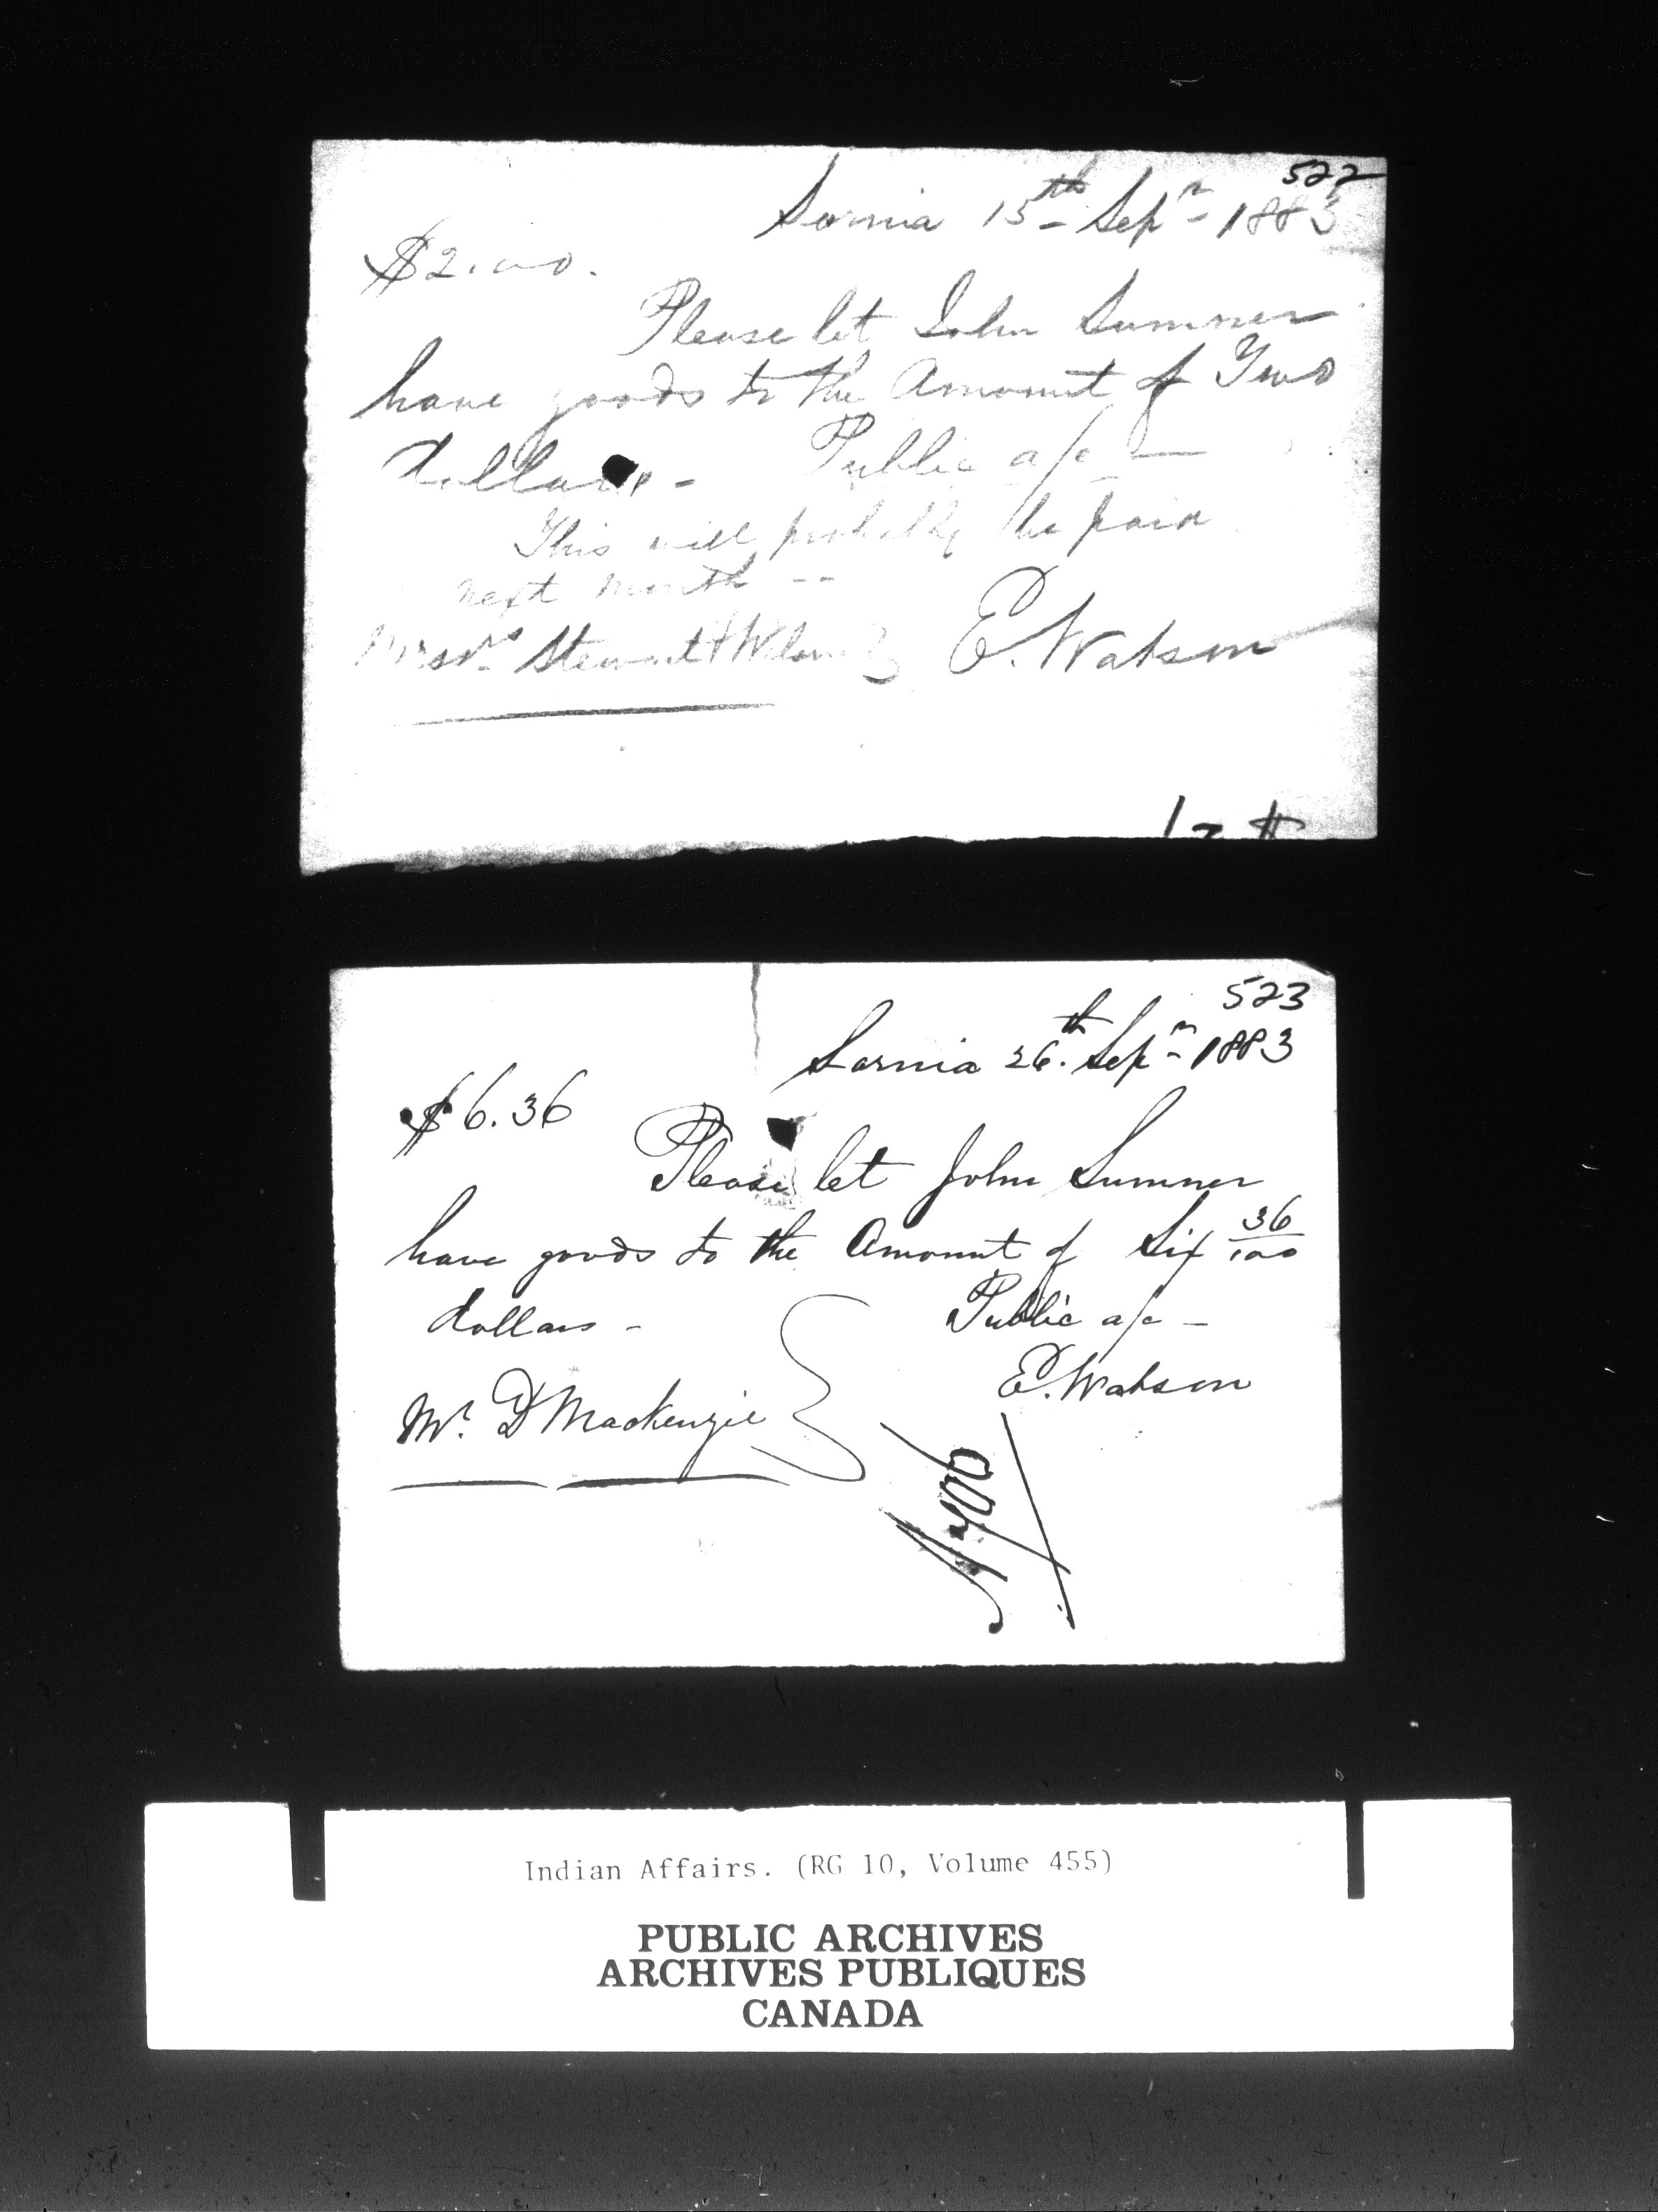 522
Sarnia 15th Sepr 1883
$2.00.
Please let John Sumner
have goods to the Amount of Two
dollars - Public a/c —
This will probably be paid
next month --
Messrs Stewart & E. Watson
523
Sarnia 26th. Sepr 1883
$6.36
Please let John Sumner
have goods to the Amount of Six 36/100
dollars - Public a/c -
E. Watson
Mr. D Mackenzie
Indian Affairs. (RG 10, Volume 455)
PUBLIC ARCHIVES
ARCHIVES PUBLIQUES
CANADA